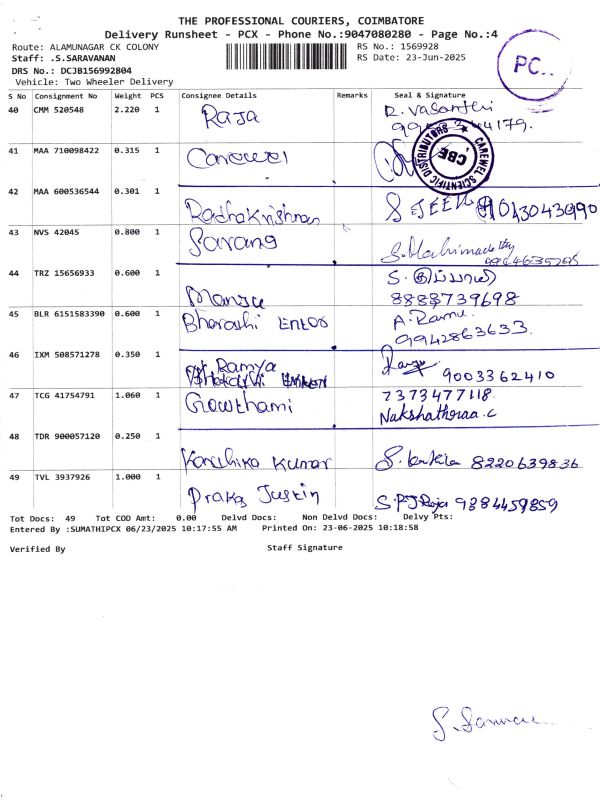 THE PROFESSIONAL COURIERS, COIMBATORE
Delivery Runsheet - PCX - Phone No.:9047080280 - Page No.:4
Route: ALAMUNAGAR CK COLONY
RS No.: 1569928
Staff: .S.SARAVANAN
RS Date: 23-Jun-2025
DRS No.: DCJB156992804
Vehicle: Two Wheeler Delivery
PC..
S No Consignment No Weight PCS Consignee Details Remarks Seal & Signature
40 CMM 520548 2.220 1 Raja R. Vasanthi
41 MAA 710098422 0.315 1 Carewel
CAREWEL SCIENTIFIC DISTRIBUTORS
CBE
42 MAA 600536544 0.301 1 Radhakrishnan
43 NVS 42045 0.800 1 Sarang
44 TRZ 15656933 0.600 1 Manju
8883739698
45 BLR 6151583390 0.600 1 Bharathi A. Ramu
9942863633
46 IXM 508571278 0.350 1 Ramya
9003362410
47 TCG 41754791 1.060 1 Gowthami 7373477118
Nakshathraa.c
48 TDR 900057120 0.250 1 Kumar 8220639836
49 TVL 3937926 1.000 1 Justin 9384459859
Tot Docs: 49 Tot COD Amt: 0.00 Delvd Docs: Non Delvd Docs: Delvy Pts:
Entered By :SUMATHIPCX 06/23/2025 10:17:55 AM Printed On: 23-06-2025 10:18:58
Verified By Staff Signature